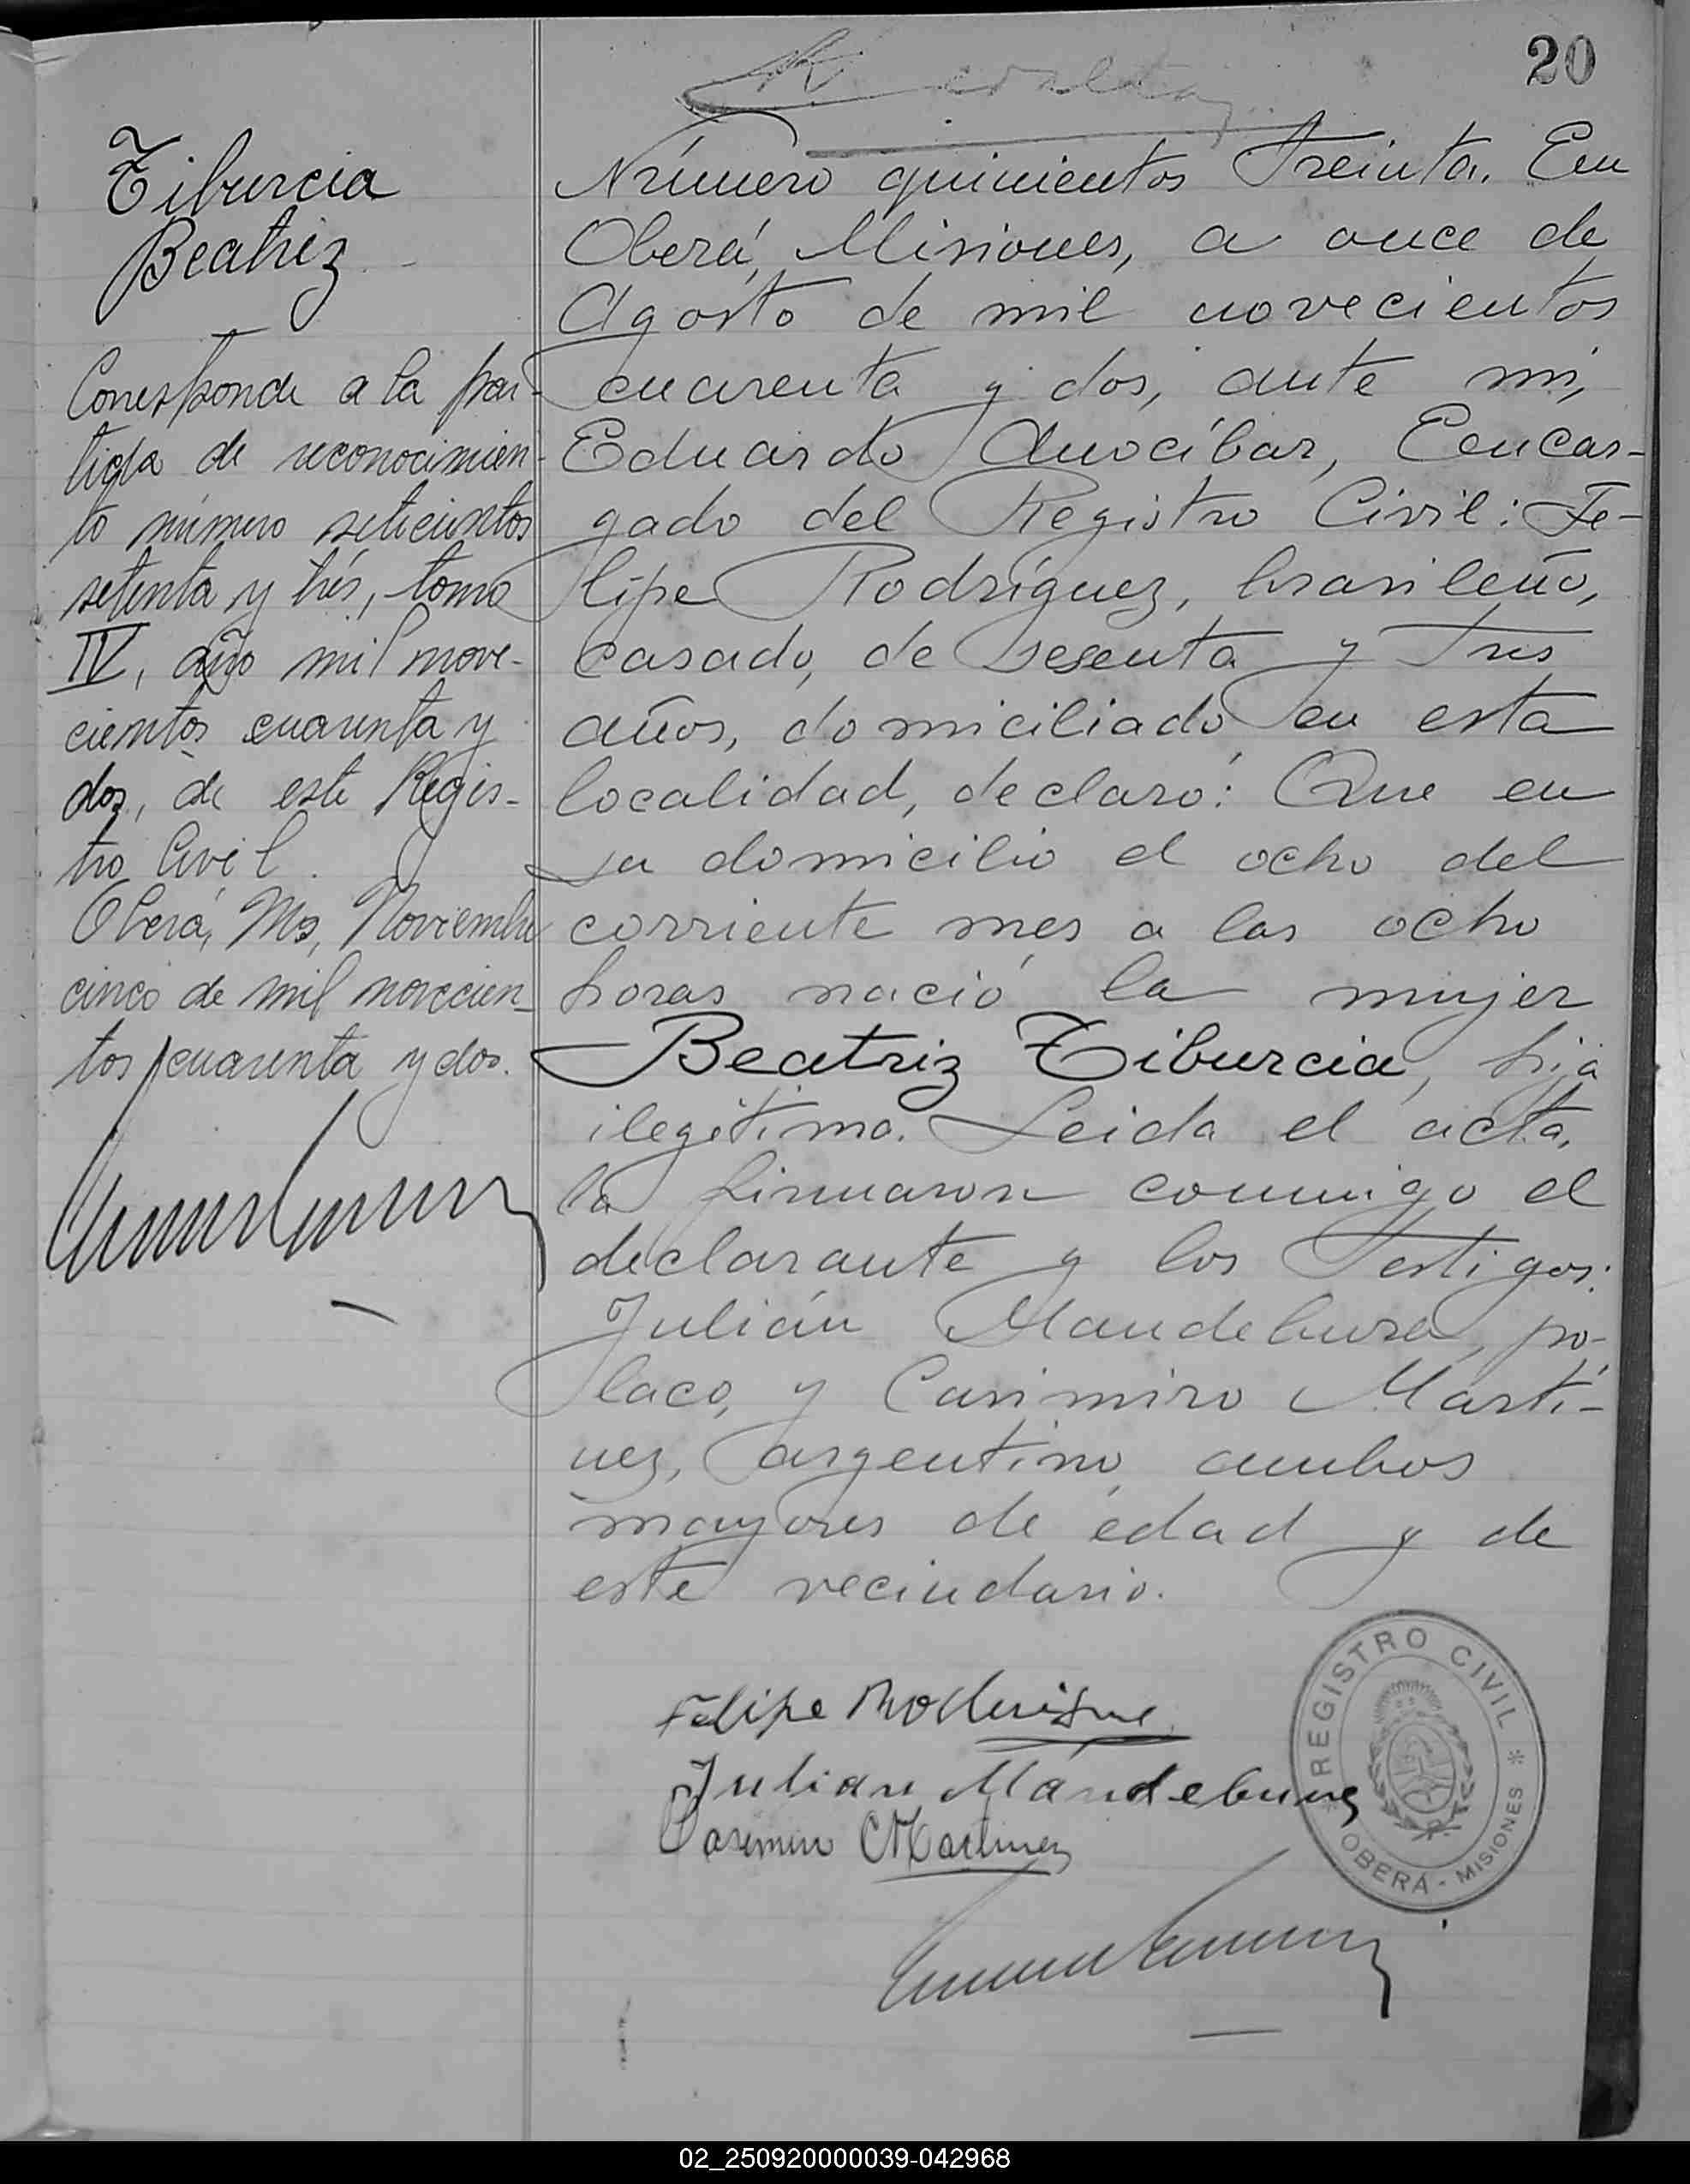 20
Tiburcia
Beatriz
Corresponde a la par-
tida de reconocimien-
to número setecientos
setenta y trés, tomo
IV, año mil nove-
cientos cuarenta y
dos, de este Regis-
tro Civil.
Oberá, Ms, Noviembre
cinco de mil novecien-
tos cuarenta y dos.
Número quinientos treinta. En
Oberá, Misiones, a once de
Agosto de mil novecientos
cuarenta y dos, ante mí,
Eduardo Anocíbar, Encar-
gado del Registro Civil: Fe-
lipe Rodríguez, brasileño,
casado, de sesenta y tres
años, domiciliado en esta
localidad, declaró: Que en
su domicilio el ocho del
corriente mes a las ocho
horas nació la mujer
Beatriz Tiburcia, hija
ilegítima. Leida el acta,
la firmaron conmigo el
declarante y los testigos:
Julián Mandebura, po-
laco, y Casimiro Martí-
nez, argentino, ambos
mayores de edad y de
este vecindario.
Felipe
Julian
Martinez
REGISTRO CIVIL
OBERÁ - MISIONES
02_250920000039-042968